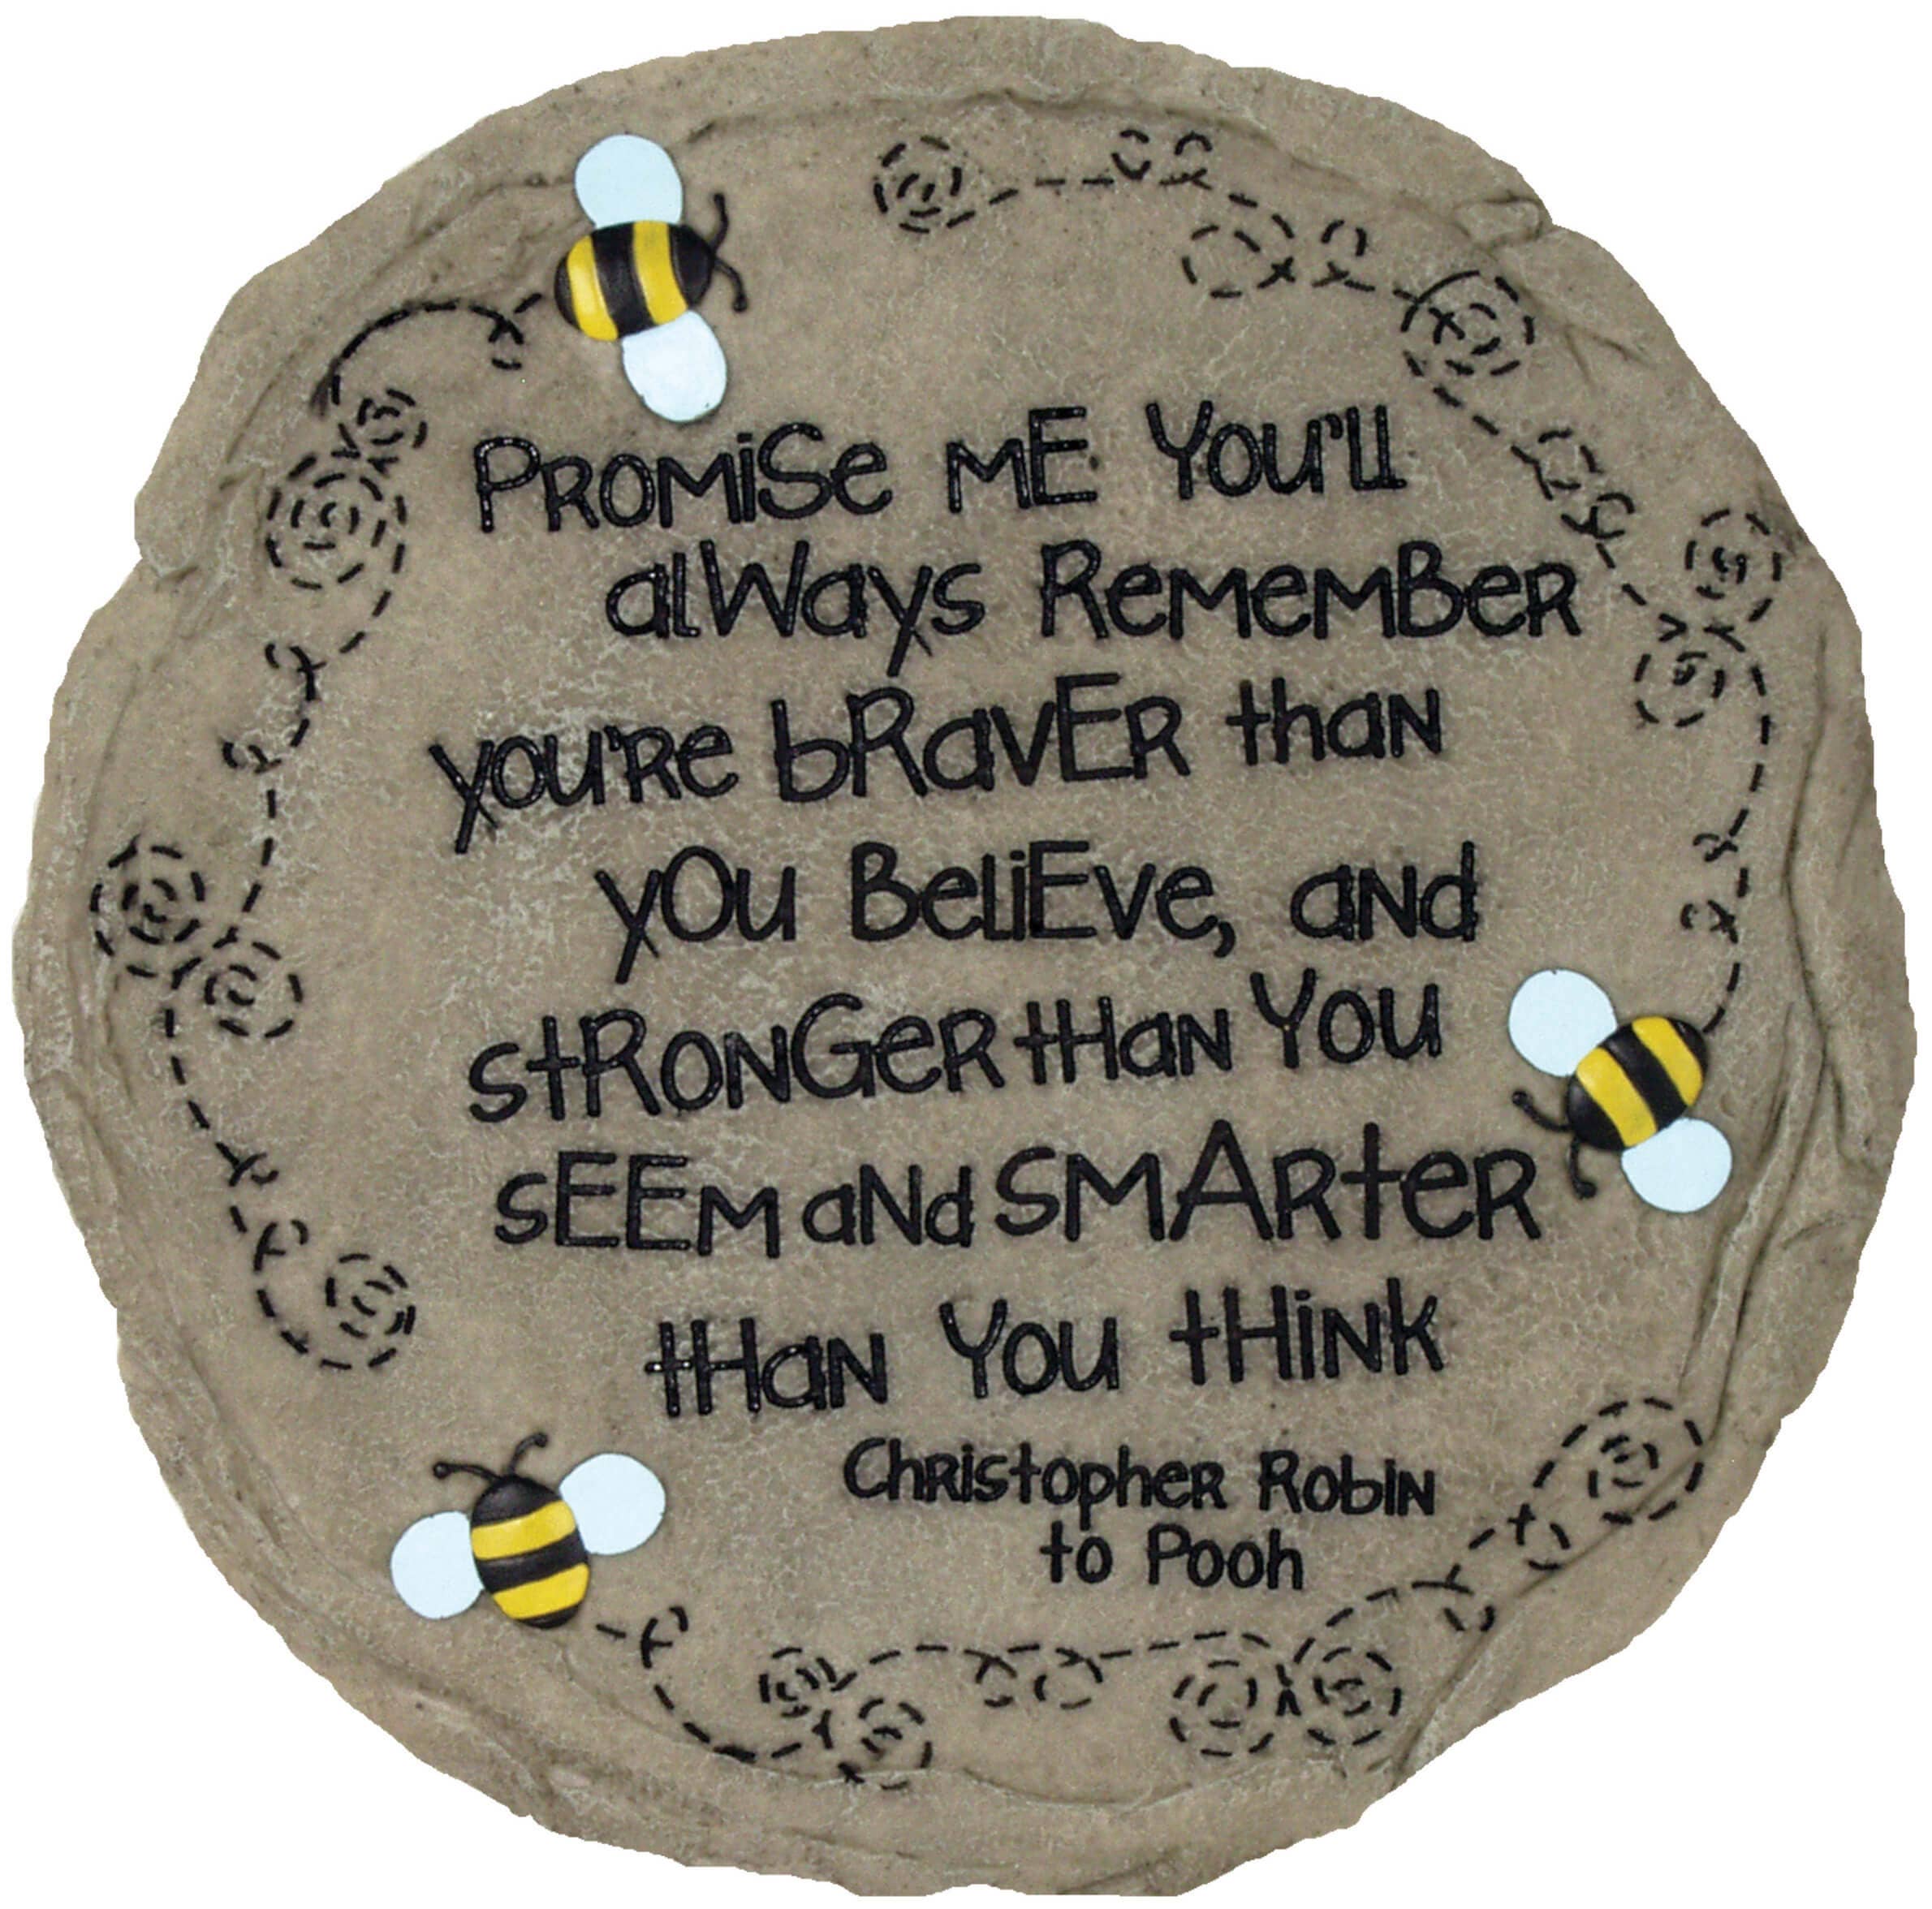 PROMiSe ME YOU'll
alWays ReMeMBeR
you're bRavER thaN
yOu BeliEve, aNd
stRoNGeR tHaN YOU
sEEM aNd SMARteR
tHaN You tHiNk
ChRistopheR RobiN
to Pooh